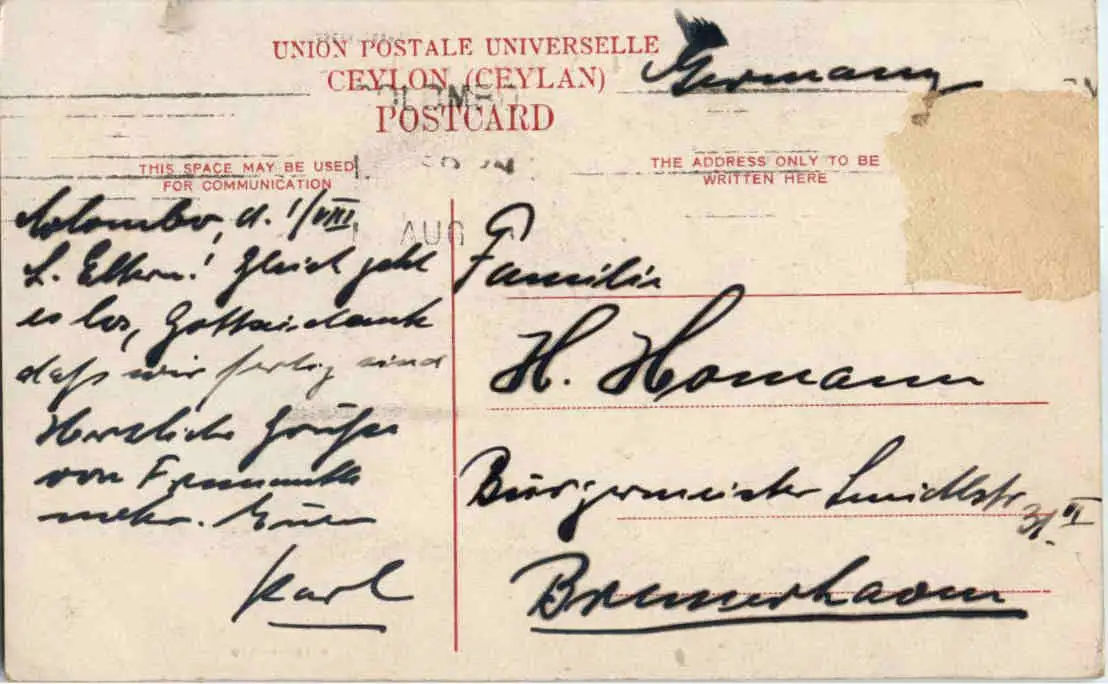 UNION POSTALE UNIVERSELLE
CEYLON (CEYLAN)
POSTCARD
Germany
THIS SPACE MAY BE USED
FOR COMMUNICATION
THE ADDRESS ONLY TO BE
WRITTEN HERE
AUG
Colombo, d. 1/VIII.
L. Eltern! Gleich geht
es los, Gottseidank
daß wir fertig sind
Herzliche Grüße
von Fremantle
mehr. Euer
Karl
Familie
H. Homann
Bürgermeister Smidtstr.
31 II
Bremerhaven